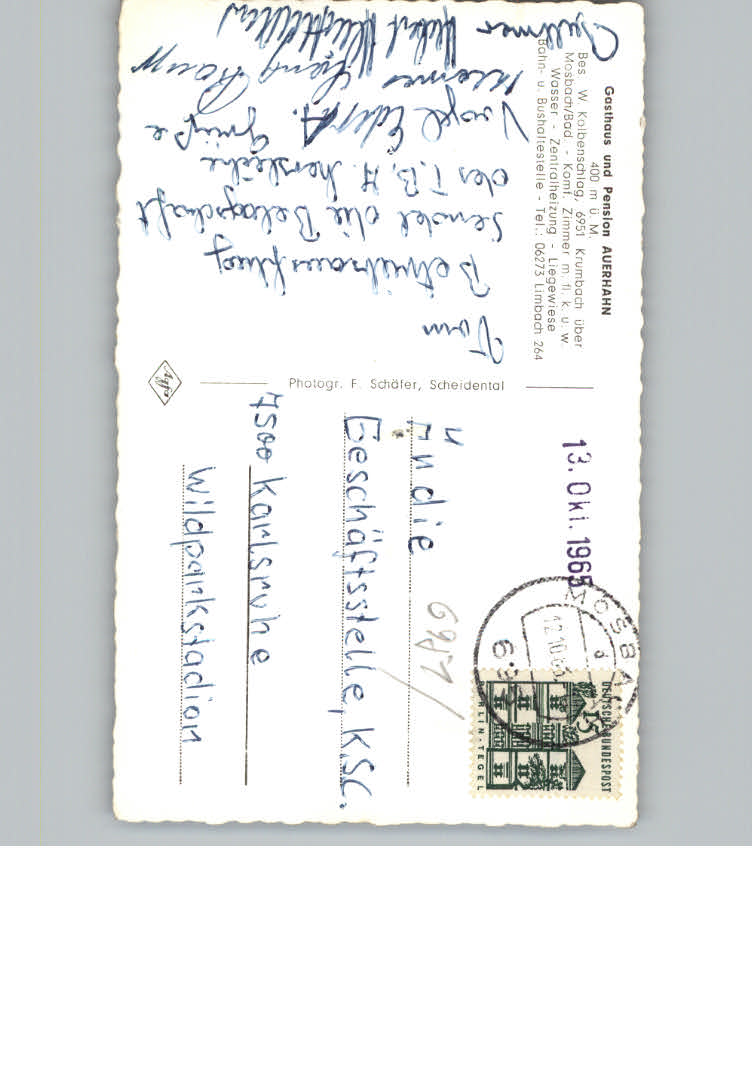 Gasthaus und Pension AUERHAHN
400 m ü. M.
Bes. W. Kolbenschlag, 6951 Krumbach über
Mosbach/Bad. - Komf. Zimmer m. fl. k. u. w.
Wasser - Zentralheizung - Liegewiese
Bahn- u. Bushaltestelle - Tel.: 06273 Limbach 264
Vom
Betriebsausflug
sendet die Belegschaft
des T.B.A. herzliche
Grüße
Vogel
Photogr. F. Schäfer, Scheidental
Agfa
13. Okt. 1965
MOSBA
12.10.65
DEUTSCHE BUNDESPOST
15
BERLIN-TEGEL
An die
Geschäftsstelle, KSC.
7500 Karlsruhe
Wildparkstadion